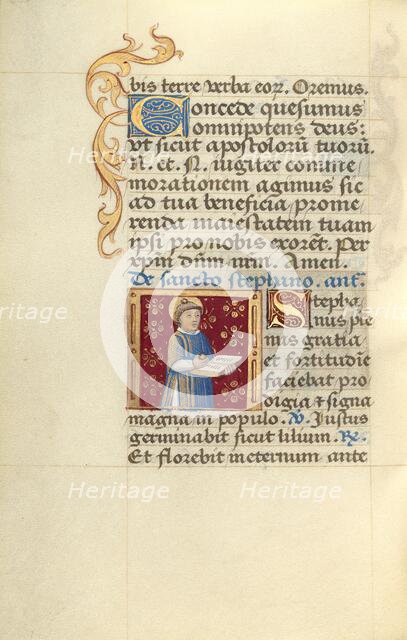 bis terre verba eoꝝ. Oremus.
Concede quesumus
omnipotens deus:
vt sicut apostolorū tuorū
N. et. N. iugiter comme
morationem agimus sic
ad tua beneficia prome
renda maiestatem tuam
ipsi pro nobis exorēt. Per
xp̄m dūm nr̄m. Amen.
De sancto stephano. ant̄.
Stepha
nus ple
nus gratia
et fortitudīe
faciebat pro
digia & signa
magna in populo. ℣. Iustus
germinabit sicut lilium. ℟.
Et florebit in eternum ante
Heritage
Heritage
Heritage
Heritage
Heritage
Heritage